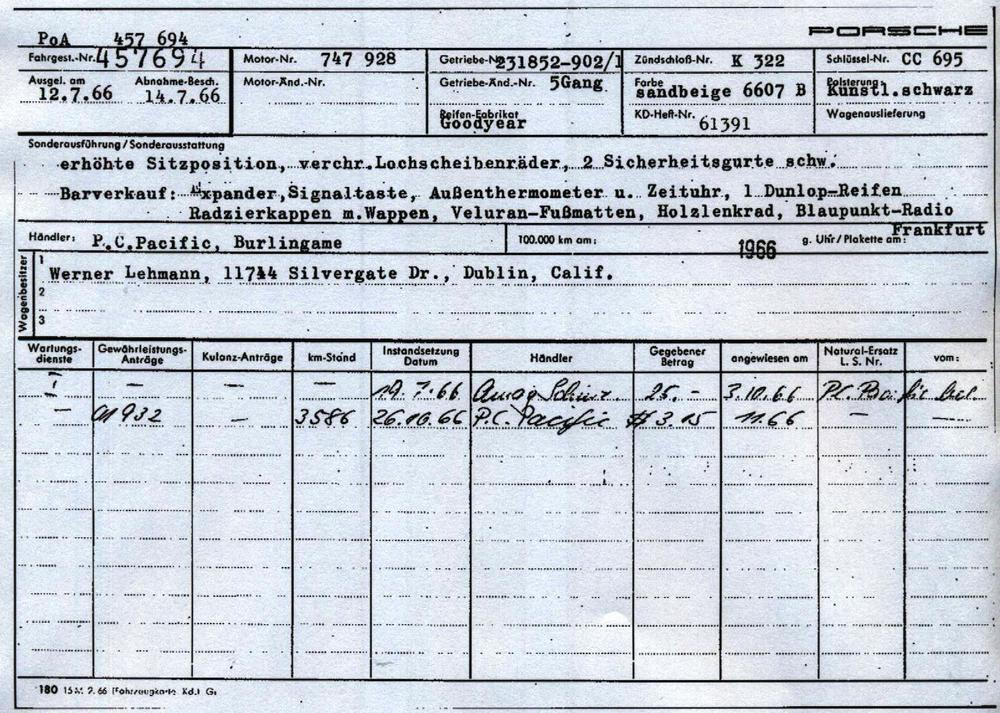 PoA 457 694 PORSCHE
Fahrgest.-Nr. 457694 Motor-Nr. 747 928 Getriebe-Nr. 231852-902/1 Zündschloß-Nr. K 322 Schlüssel-Nr. CC 695
Ausgel. am 12.7.66 Abnahme-Besch. 14.7.66 Motor-Änd.-Nr. Getriebe-Änd.-Nr. 5Gang Farbe sandbeige 6607 B Polsterung Kunstl.schwarz
Reifen-Fabrikat Goodyear KD-Heft-Nr. 61391 Wagenauslieferung
Sonderausführung / Sonderausstattung
erhöhte Sitzposition, verchr.Lochscheibenräder, 2 Sicherheitsgurte schw.
Barverkauf: Expander, Signaltaste, Außenthermometer u. Zeituhr, 1 Dunlop-Reifen
Radzierkappen m.Wappen, Veluran-Fußmatten, Holzlenkrad, Blaupunkt-Radio
Frankfurt
Händler: P.C.Pacific, Burlingame 100.000 km am: 1966 g. Uhr / Plakette am:
Wagenbesitzer
1 Werner Lehmann, 11744 Silvergate Dr., Dublin, Calif.
2
3
Wartungs-dienste Gewährleistungs-Anträge Kulanz-Anträge km-Stand Instandsetzung Datum Händler Gegebener Betrag angewiesen am Natural-Ersatz L. S. Nr. vom:
— — — — 19.7.66 25.- 3.10.66
— 01932 — 3586 26.10.66 P.C. Pacific $ 3.15 11.66 — —
180 15 M. 2. 66 (Fahrzeugkarte Kd.) Gs